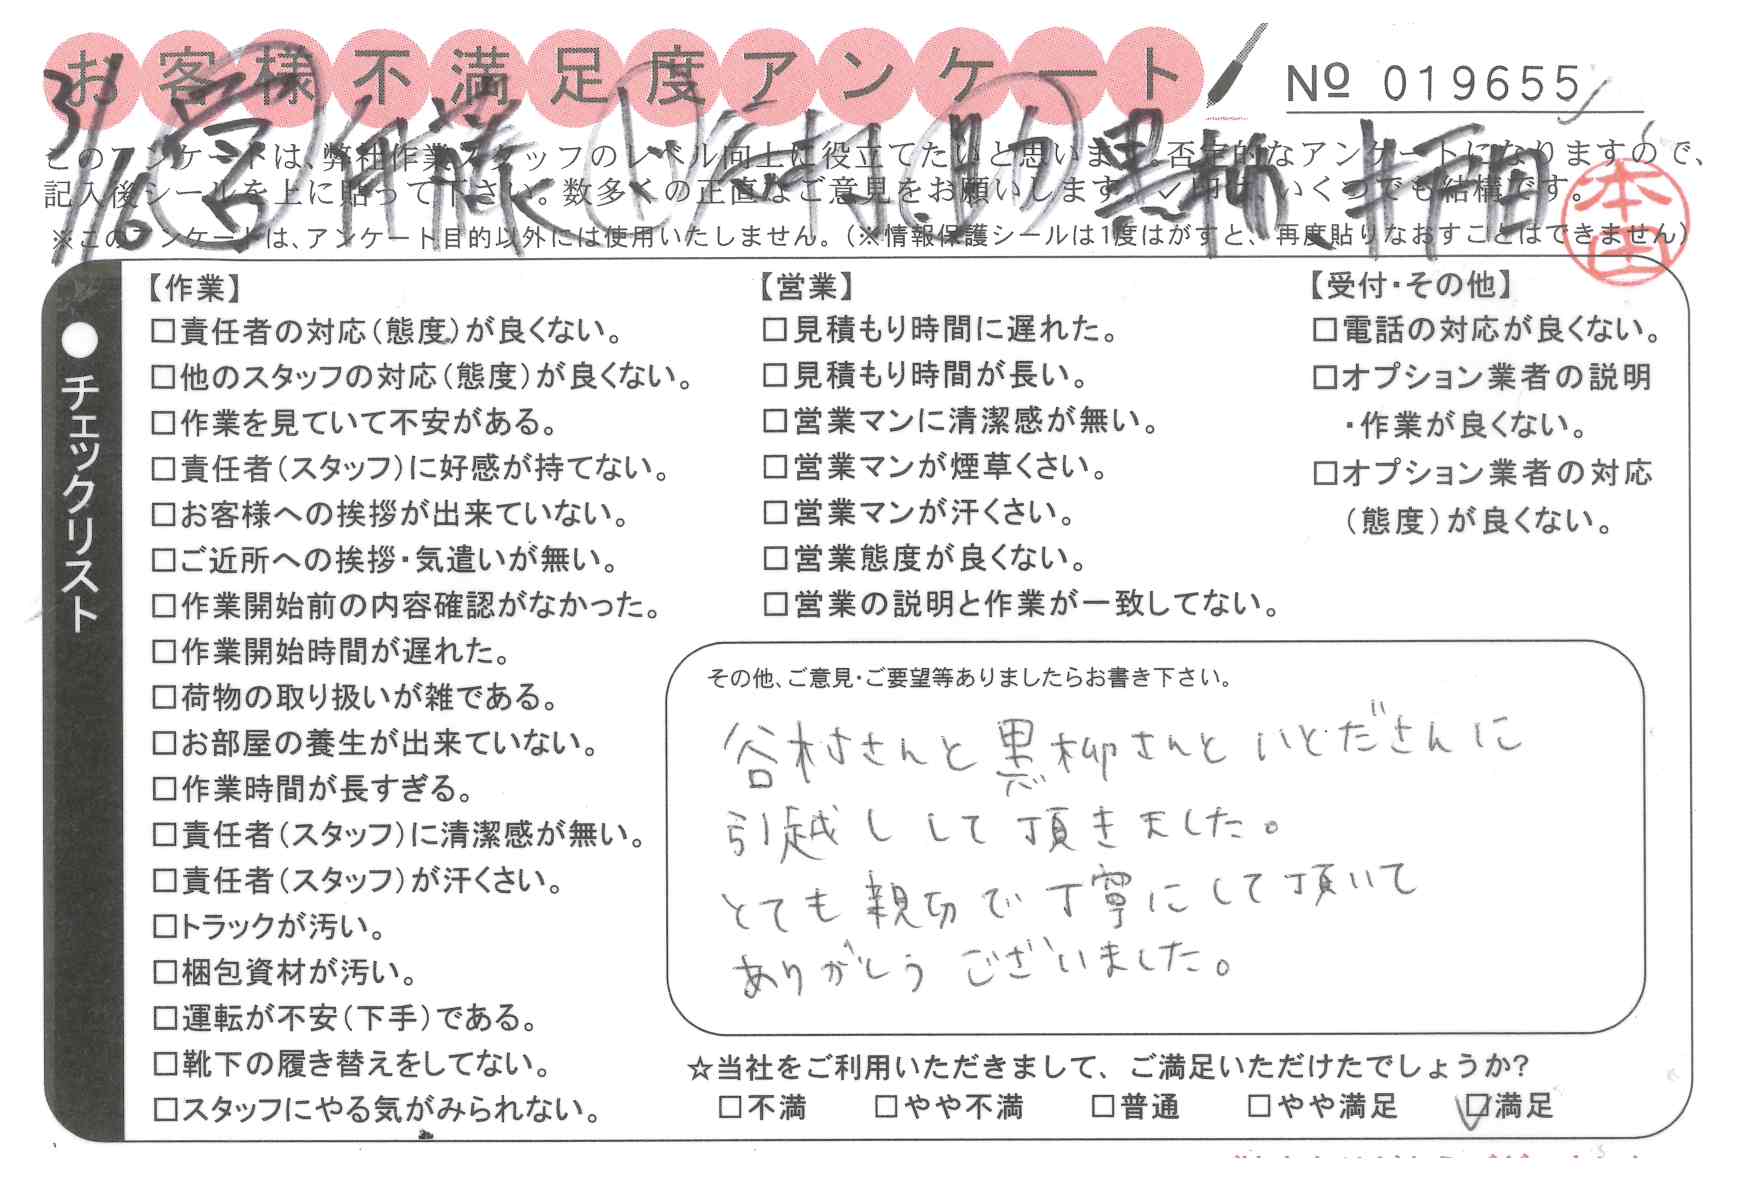 お客様不満足度アンケート
Nº 019655
3/16
このアンケートは、弊社作業スタッフのレベル向上に役立てたいと思います。否定的なアンケートになりますので、
記入後シールを上に貼って下さい。数多くの正直なご意見をお願いします。✓印は、いくつでも結構です。
※このアンケートは、アンケート目的以外には使用いたしません。(※情報保護シールは1度はがすと、再度貼りなおすことはできません)
本田
チェックリスト
【作業】
□責任者の対応(態度)が良くない。
□他のスタッフの対応(態度)が良くない。
□作業を見ていて不安がある。
□責任者(スタッフ)に好感が持てない。
□お客様への挨拶が出来ていない。
□ご近所への挨拶・気遣いが無い。
□作業開始前の内容確認がなかった。
□作業開始時間が遅れた。
□荷物の取り扱いが雑である。
□お部屋の養生が出来ていない。
□作業時間が長すぎる。
□責任者(スタッフ)に清潔感が無い。
□責任者(スタッフ)が汗くさい。
□トラックが汚い。
□梱包資材が汚い。
□運転が不安(下手)である。
□靴下の履き替えをしてない。
□スタッフにやる気がみられない。
【営業】
□見積もり時間に遅れた。
□見積もり時間が長い。
□営業マンに清潔感が無い。
□営業マンが煙草くさい。
□営業マンが汗くさい。
□営業態度が良くない。
□営業の説明と作業が一致してない。
【受付・その他】
□電話の対応が良くない。
□オプション業者の説明
・作業が良くない。
□オプション業者の対応
(態度)が良くない。
その他、ご意見・ご要望等ありましたらお書き下さい。
谷村さんと黒柳さんといとださんに
引越しして頂きました。
とても親切で丁寧にして頂いて
ありがとうございました。
☆当社をご利用いただきまして、ご満足いただけたでしょうか?
□不満 □やや不満 □普通 □やや満足 ☑満足